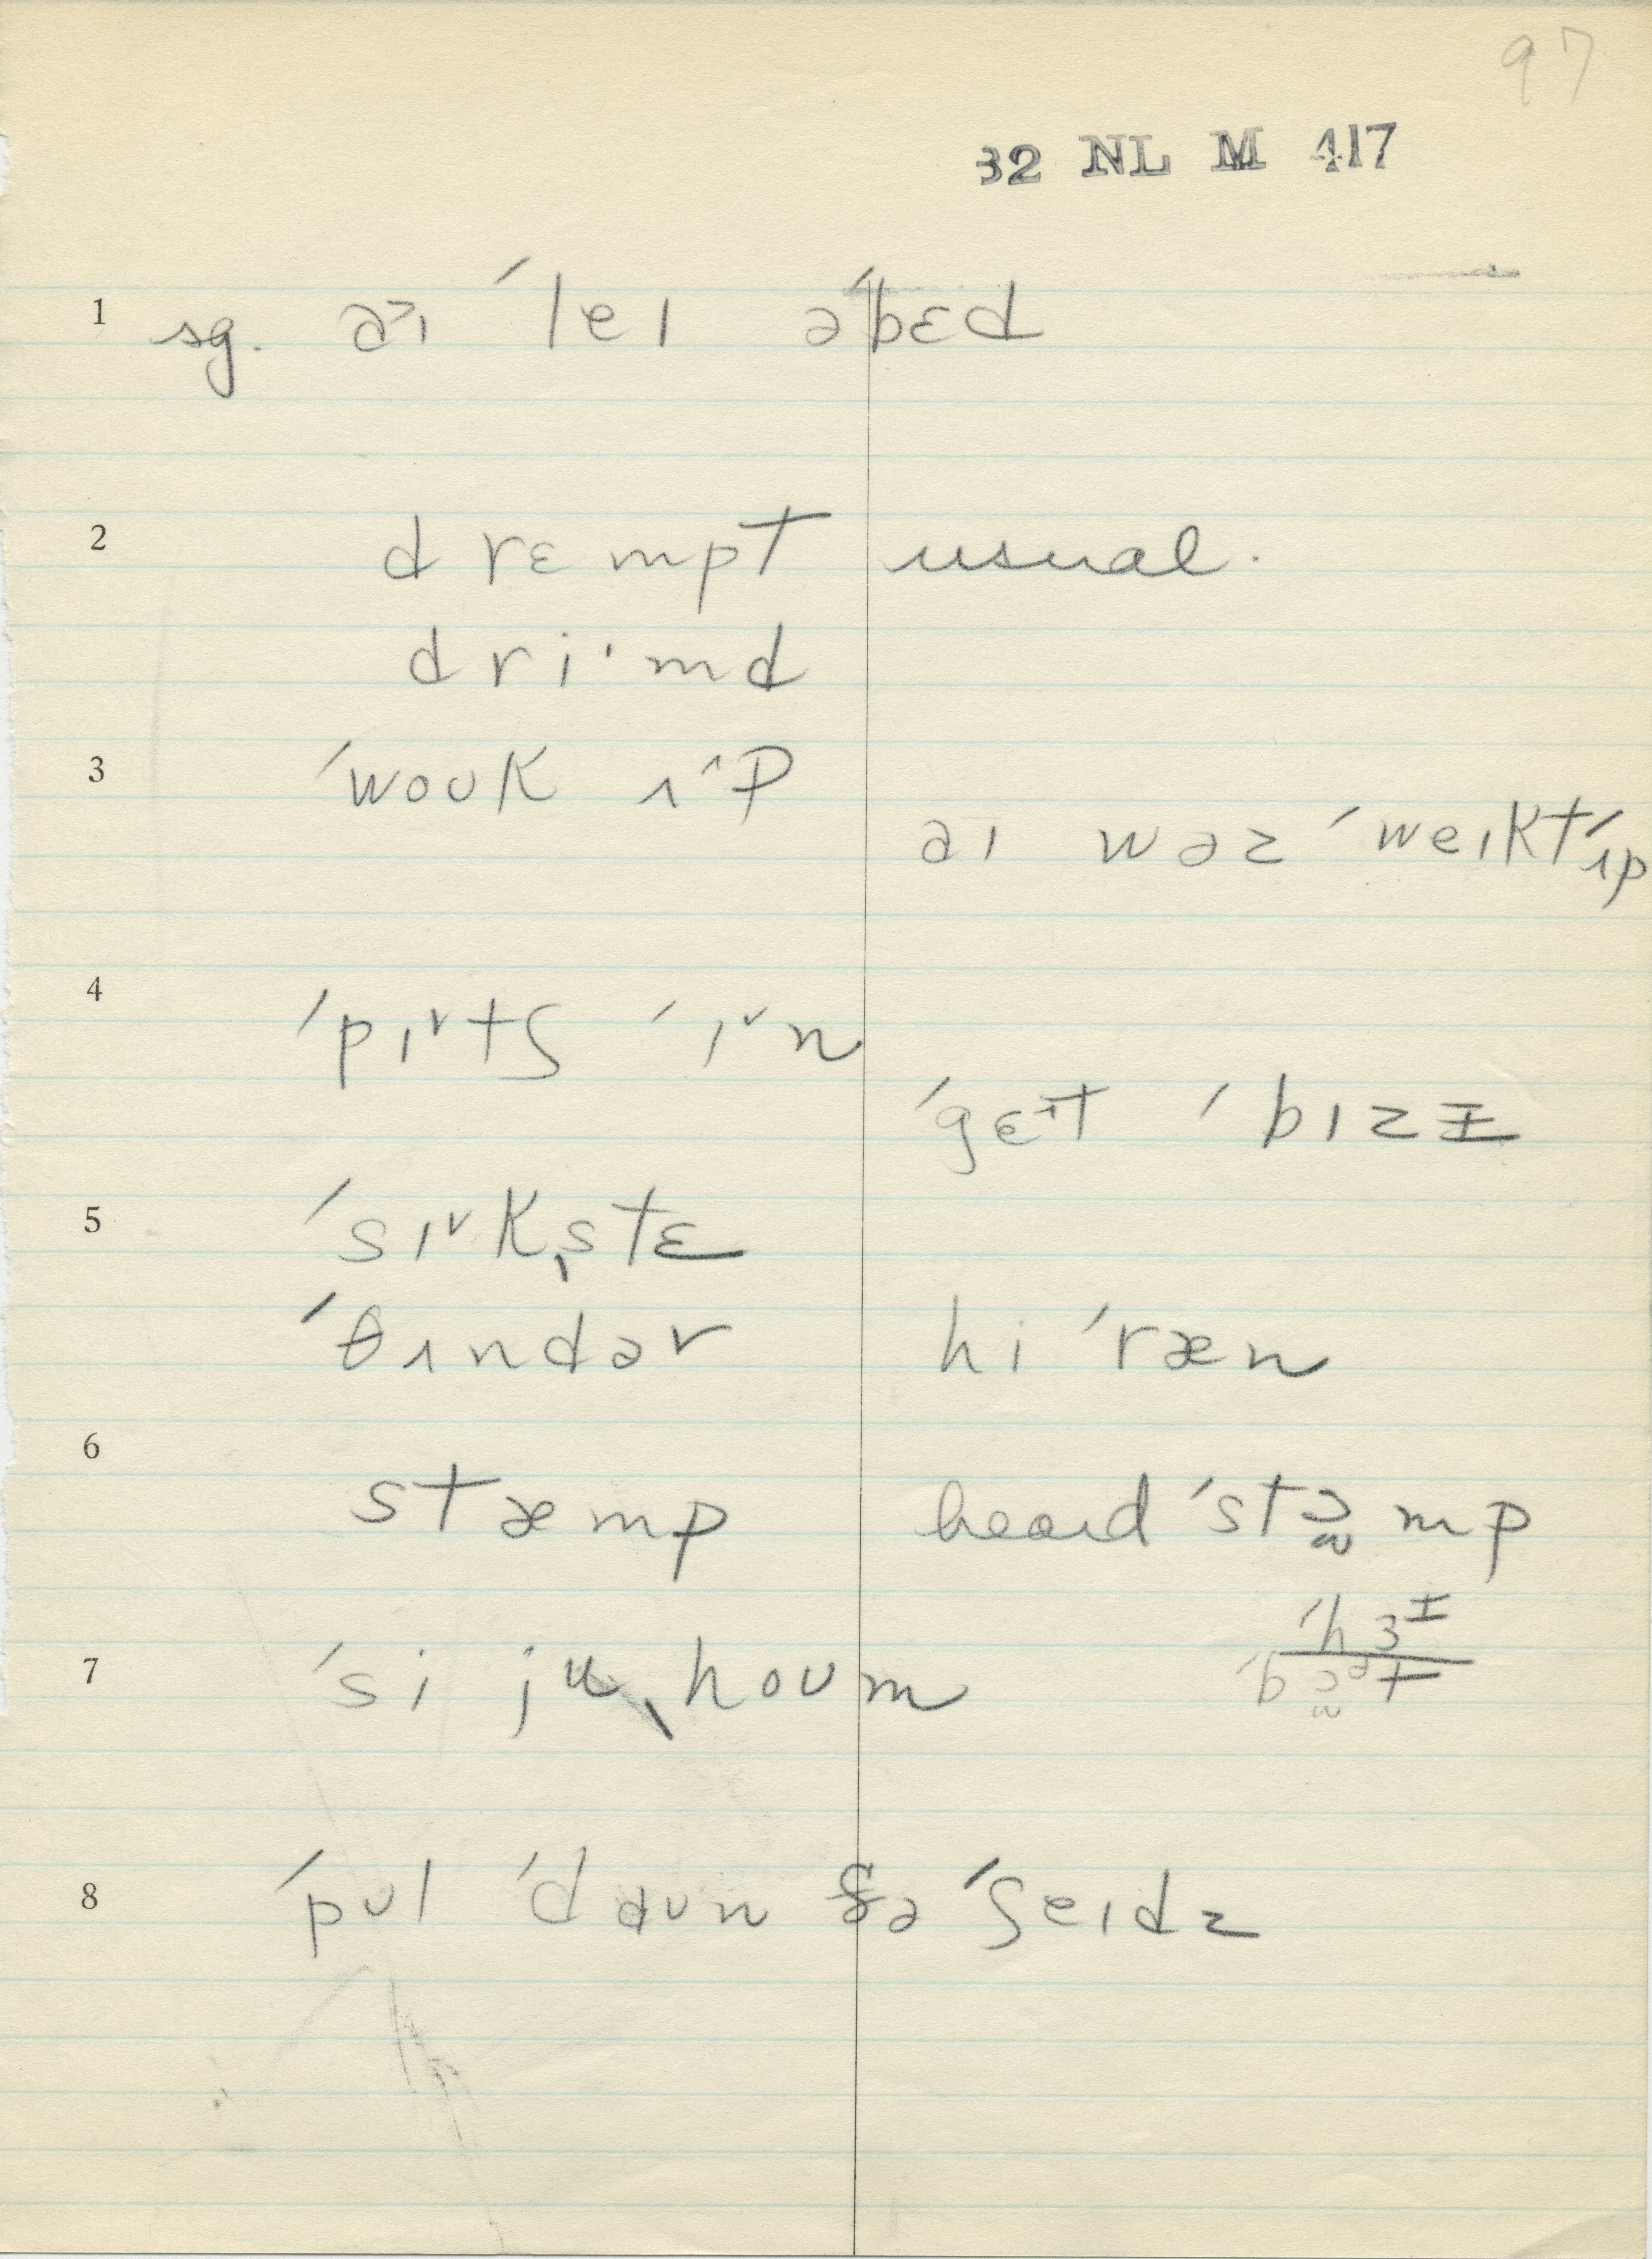 97
32 NL M 417
1 sg. ə˃ɪ ˈleɪ əˈbɛd
2 drɛmpt usual.
driˑmd
3 ˈwoʊk ʌ^p
aɪ wəz ˈweɪkt ˈʌp
4 ˈpɪ˅tʃ ˈɪ˅n
ˈgɛᶦt ˈbɪzɪ
5 ˈsɪ˅kˌstɛ
ˈθʌndər hi ˈræn
6 stæmp heard ˈstɒmp
7 ˈsi ju ˌhoʊm
8 ˈpʊl ˈdaʊn ðə ˈʃeɪdz